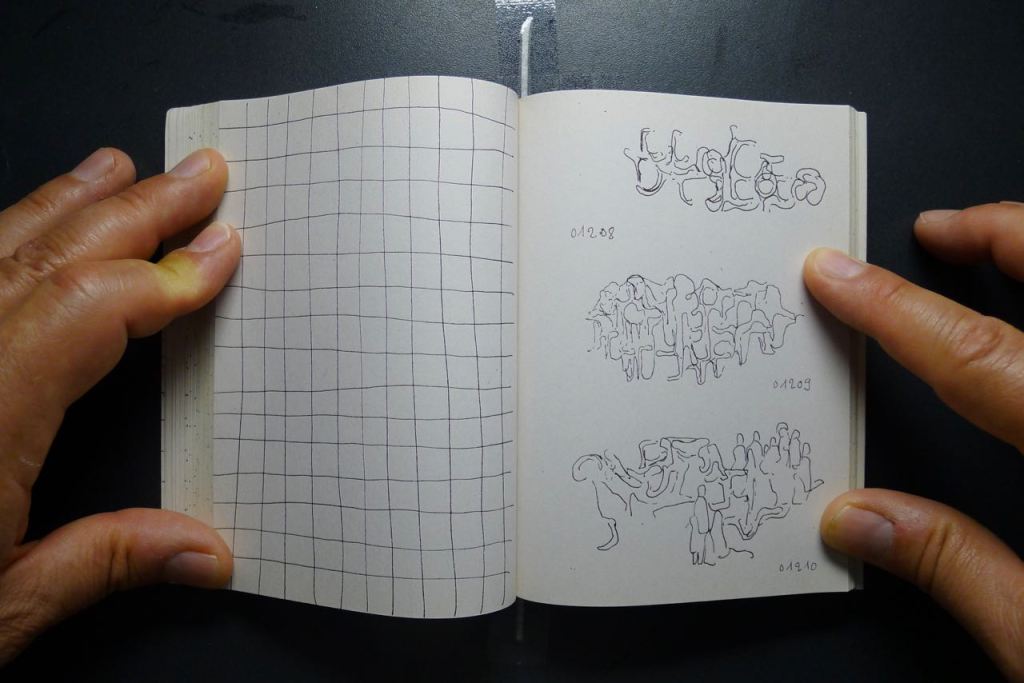 01208
01209
01210